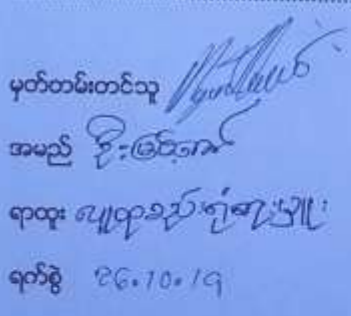 မှတ်တမ်းတင်သူ
အမည် ဦးမြင့်အောင်
ရာထူး လူထုစည်းရုံးရေးမှူး
ရက်စွဲ 26.10.19